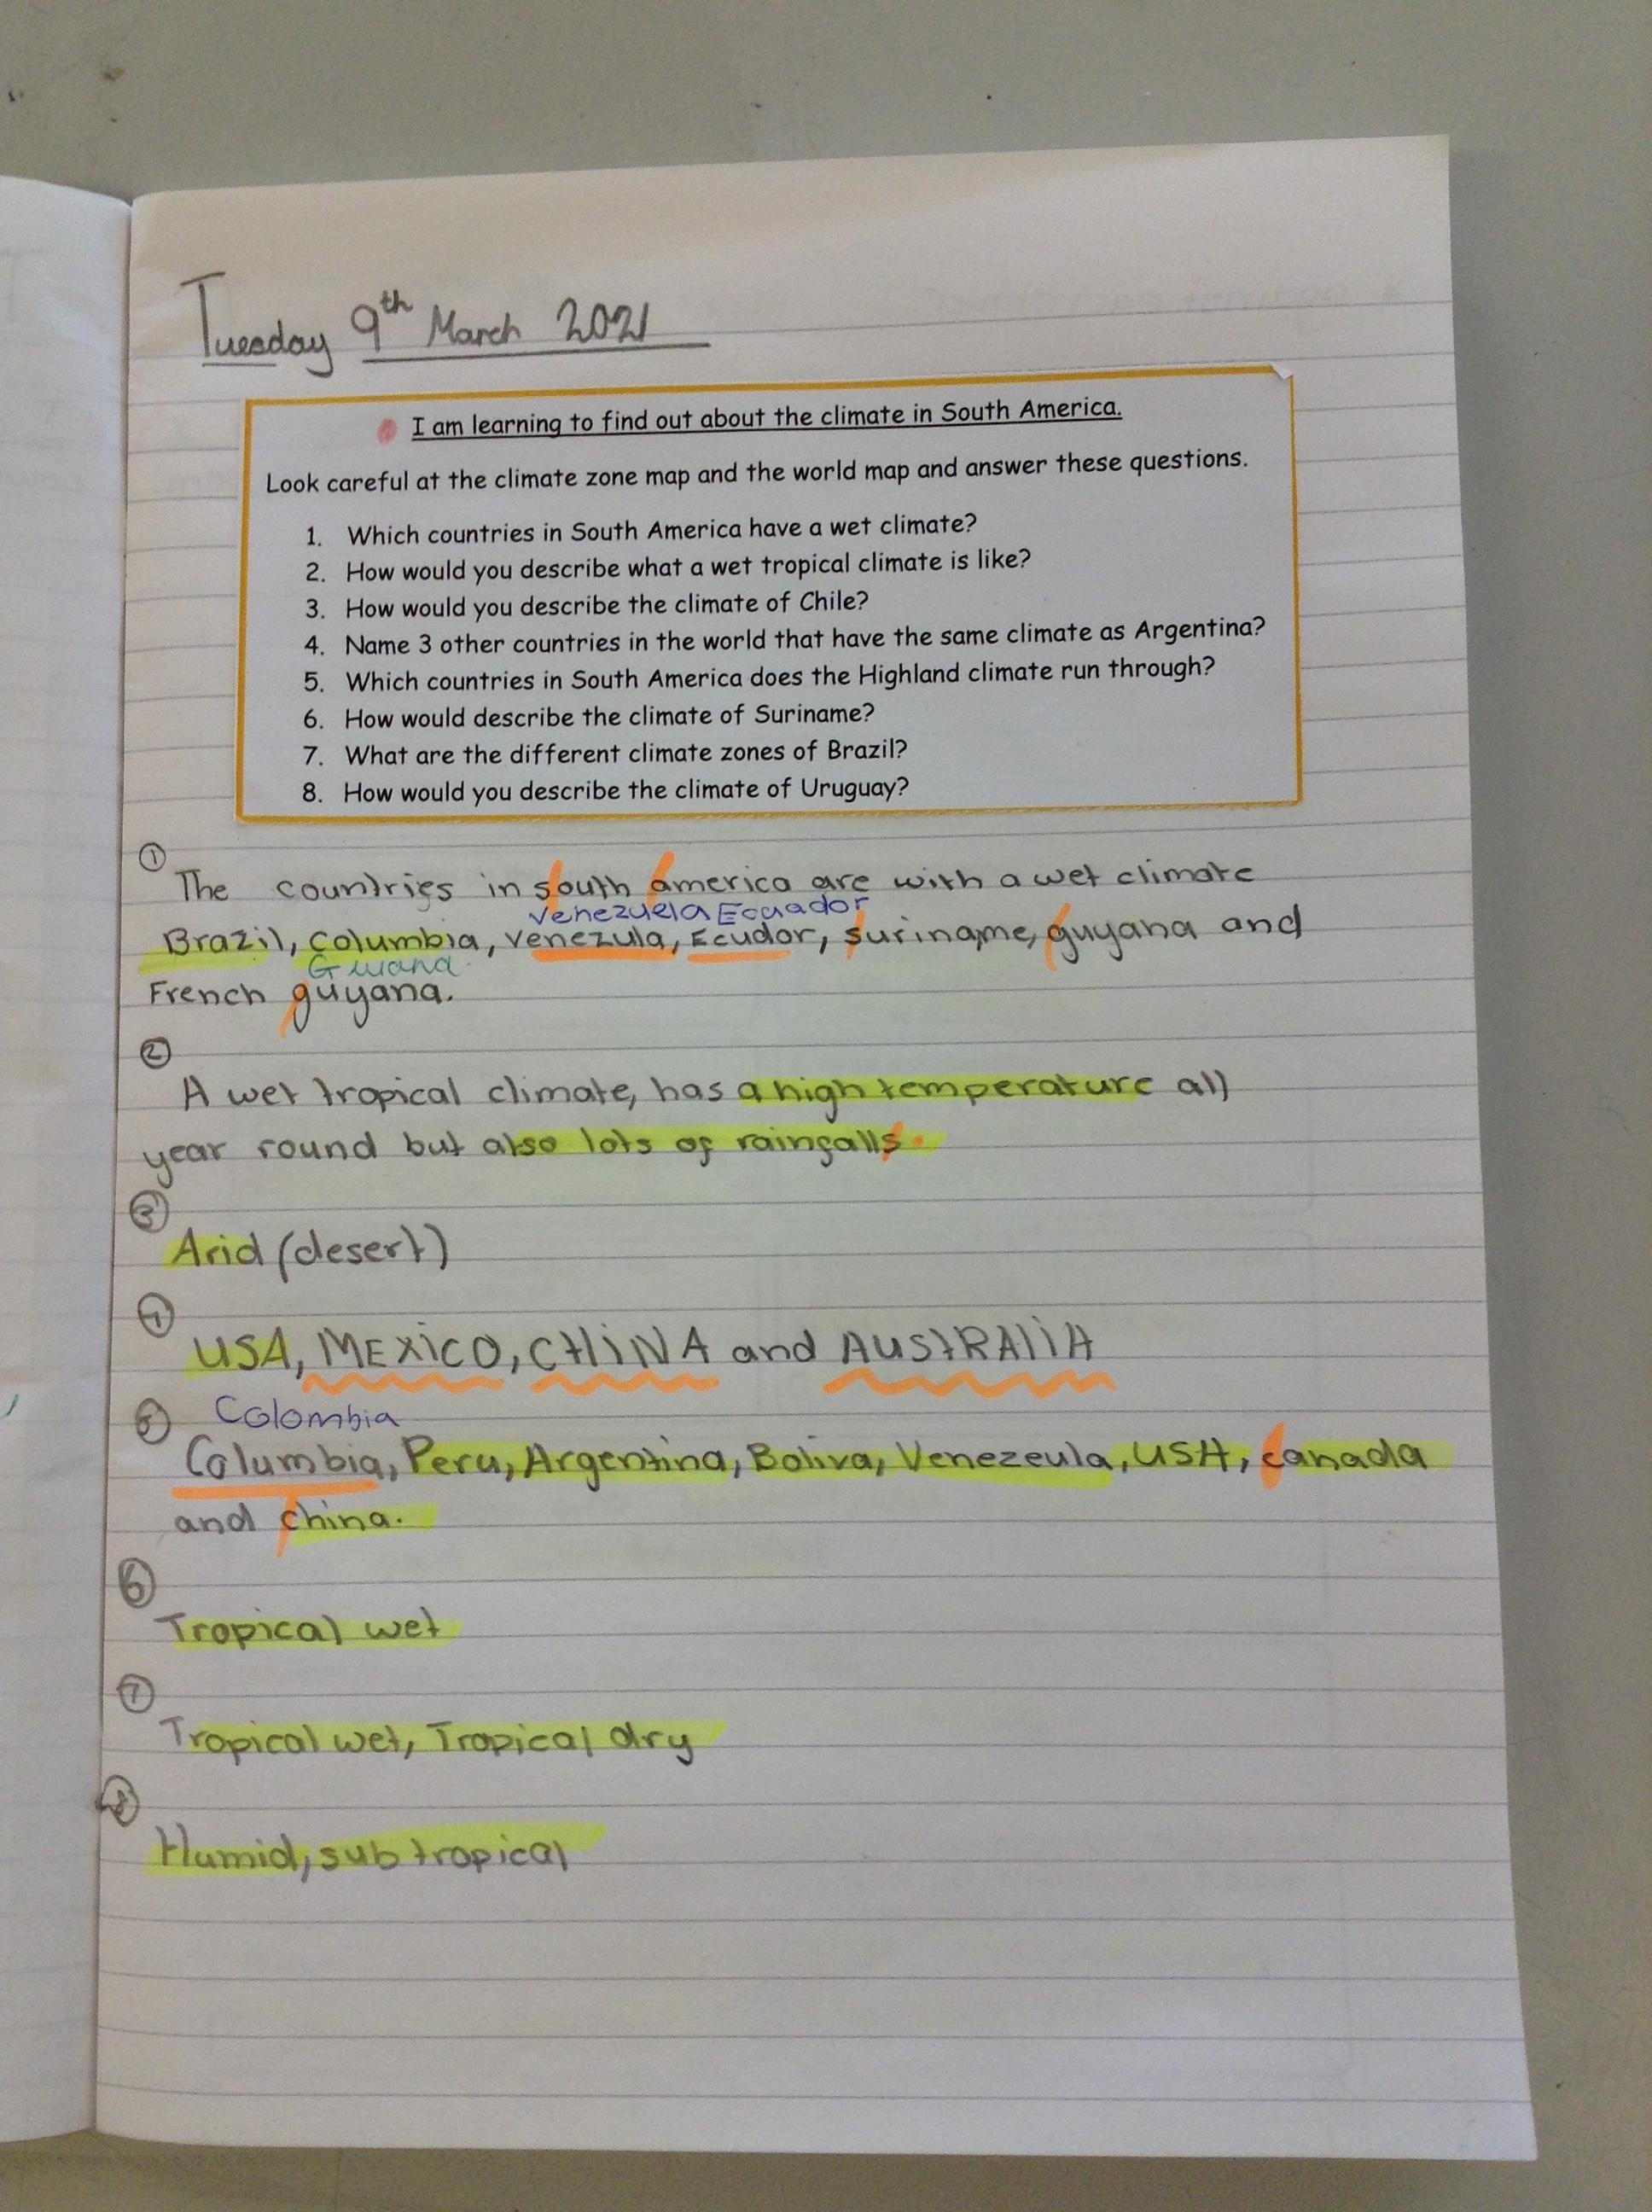 Tuesday 9th March 2021
I am learning to find out about the climate in South America.
Look careful at the climate zone map and the world map and answer these questions.
1. Which countries in South America have a wet climate?
2. How would you describe what a wet tropical climate is like?
3. How would you describe the climate of Chile?
4. Name 3 other countries in the world that have the same climate as Argentina?
5. Which countries in South America does the Highland climate run through?
6. How would describe the climate of Suriname?
7. What are the different climate zones of Brazil?
8. How would you describe the climate of Uruguay?
①
The countries in south america are with a wet climate
Venezuela Ecuador
Brazil, Columbia, venezula, Ecudor, suriname, guyana and
Guiana
French guyana.
②
A wet tropical climate, has a high temperature all
year round but also lots of rainfalls.
③
Arid (desert)
④
USA, MEXICO, CHINA and AUSTRALIA
⑤ Colombia
Columbia, Peru, Argentina, Boliva, Venezeula, USA, canada
and china.
⑥
Tropical wet
⑦
Tropical wet, Tropical dry
⑧
Humid, sub tropical